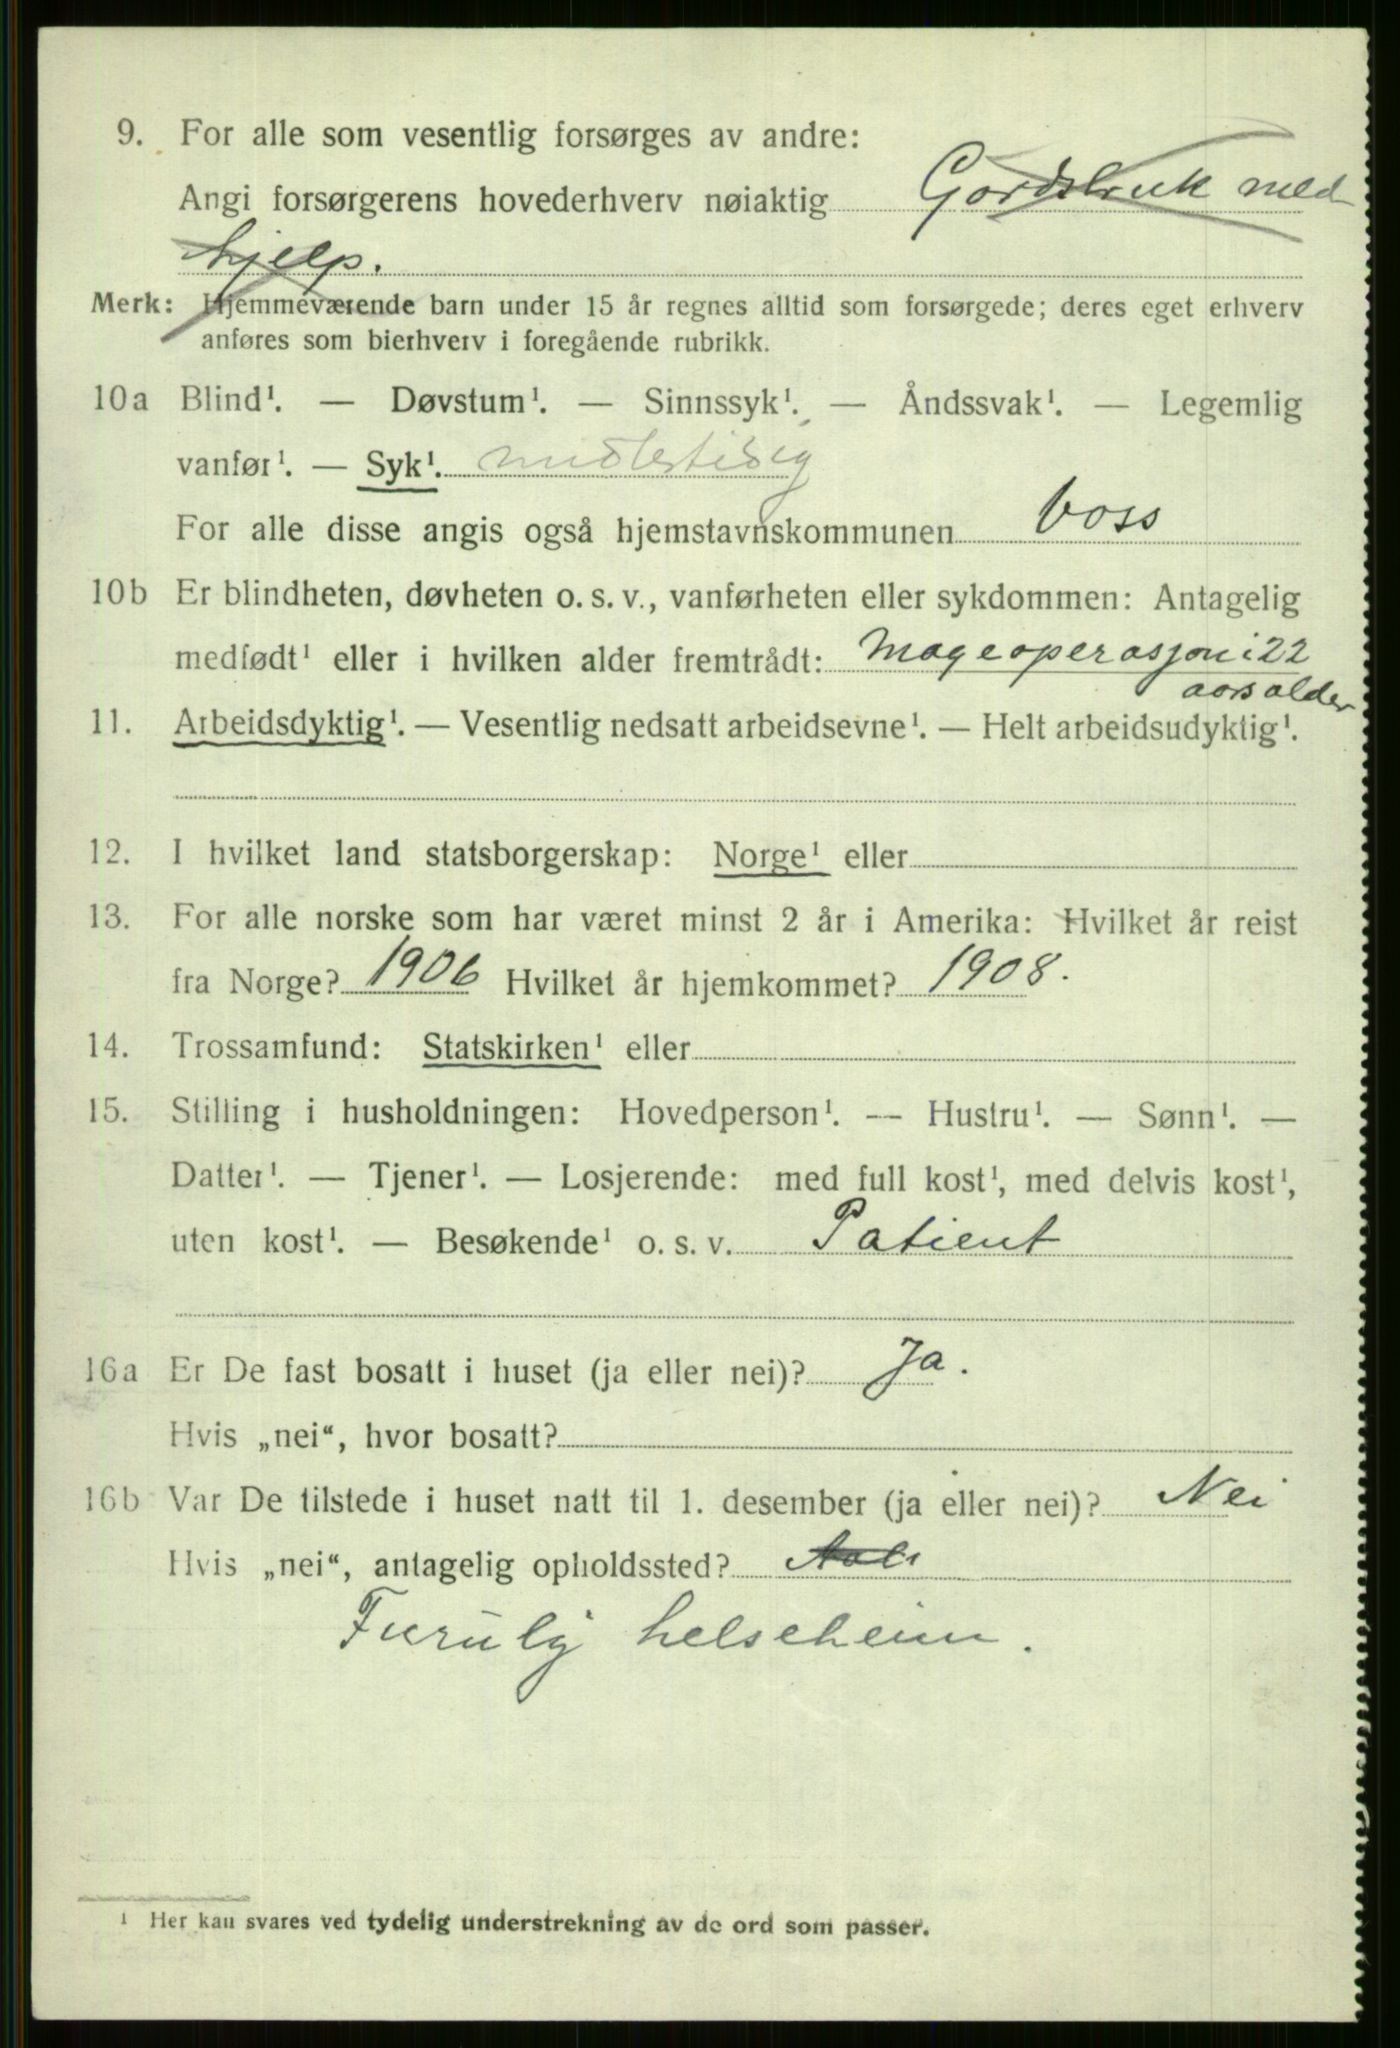 9. For alle som vesentlig forsørges av andre:
Angi forsørgerens hovederhverv nøiaktig Gardsbruk med
hjelp.
Merk: Hjemmeværende barn under 15 år regnes alltid som forsørgede; deres eget erhverv
anføres som bierhverv i foregående rubrikk.
10a Blind¹. — Døvstum¹. — Sinnssyk¹. — Åndssvak¹. — Legemlig
vanfør¹. — Syk¹. midlertidig
For alle disse angis også hjemstavnskommunen Voss
10b Er blindheten, døvheten o. s. v., vanførheten eller sykdommen: Antagelig
medfødt¹ eller i hvilken alder fremtrådt: Mageoperasjon i 22
aars alder
11. Arbeidsdyktig¹. — Vesentlig nedsatt arbeidsevne¹. — Helt arbeidsudyktig¹.
12. I hvilket land statsborgerskap: Norge¹ eller
13. For alle norske som har været minst 2 år i Amerika: Hvilket år reist
fra Norge? 1906 Hvilket år hjemkommet? 1908.
14. Trossamfund: Statskirken¹ eller
15. Stilling i husholdningen: Hovedperson¹. — Hustru¹. — Sønn¹. —
Datter¹. — Tjener¹. — Losjerende: med full kost¹, med delvis kost¹,
uten kost¹. — Besøkende¹ o. s. v. Patient
16a Er De fast bosatt i huset (ja eller nei)? Ja.
Hvis „nei“, hvor bosatt?
16b Var De tilstede i huset natt til 1. desember (ja eller nei)? Nei
Hvis „nei“, antagelig opholdssted?
Furuly helseheim.
¹ Her kan svares ved tydelig understrekning av de ord som passer.